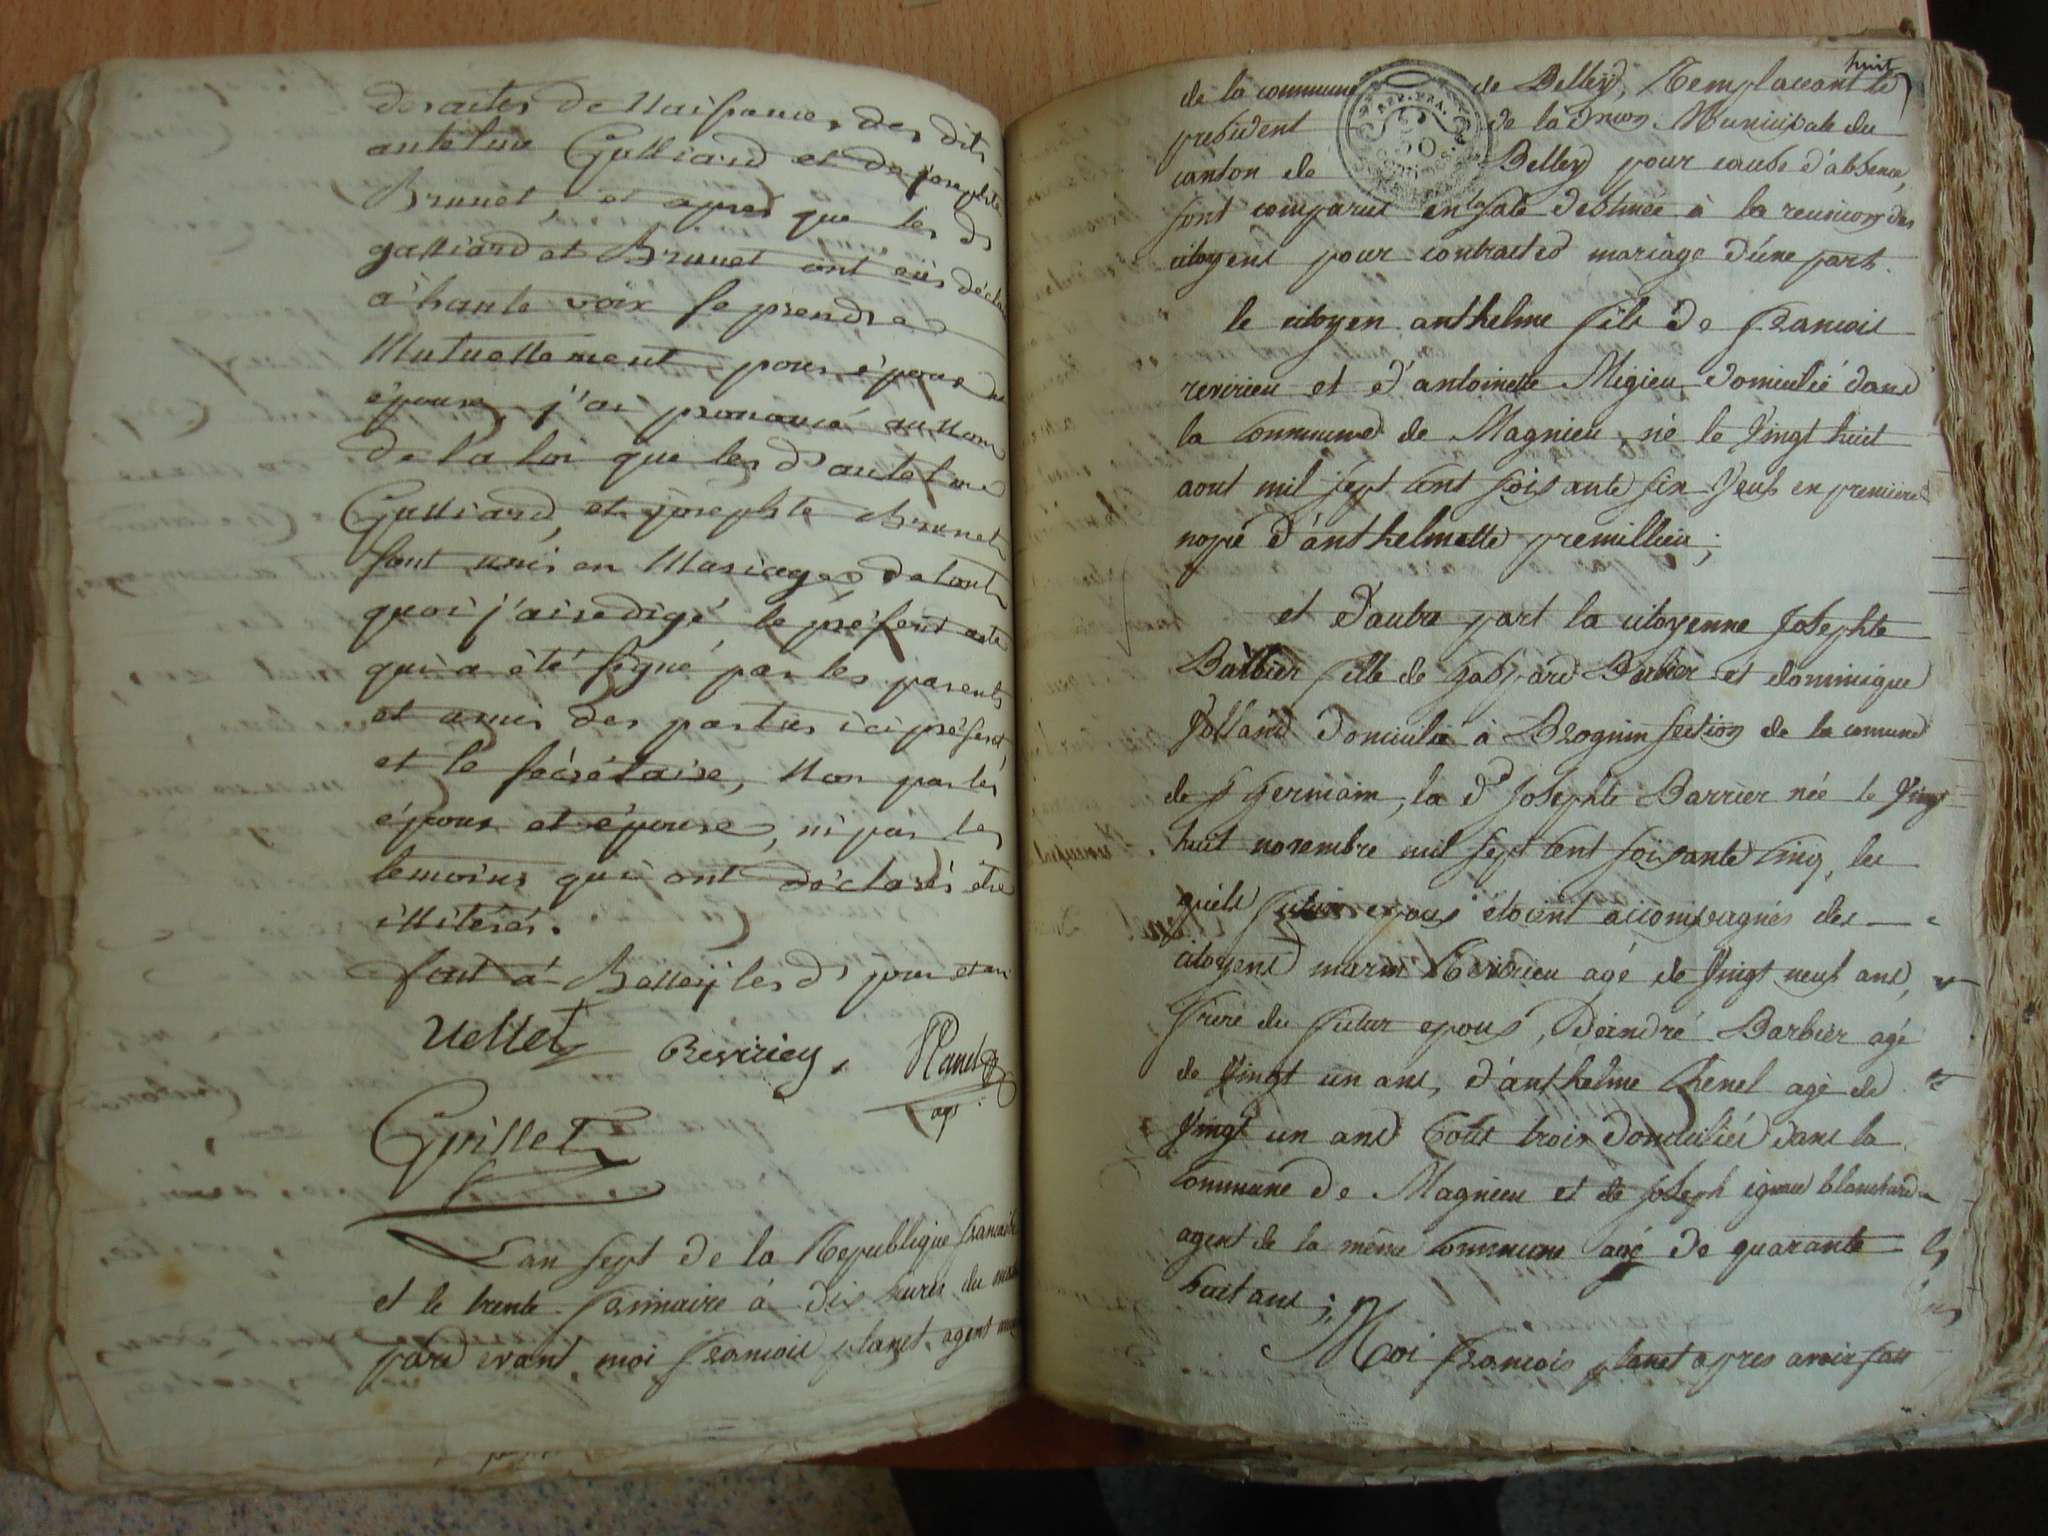 des actes de Naissances des dits
antelme Galliard et de josephte
Brunet, et apres que les ds
galliard et Brunet ont eus déclaré
a haute voix se prendre
Mutuellement pour époux et
épouse, j'ai prononcé au nom
de la loi que les ds antelme
Galliard, et josephte Brunet
sont unis en Mariage, de tout
quoi j'ai redigé le présent acte
qui a été signé par les parents
et amis des parties ici présent
et le sécrétaire, Non par les
époux et épouse, ni par les
temoins qui ont déclarés être
illitérés.
fait a Belley les ds jour et an
Vellet Reviriey. Planet
agt
Guillet
L'an sept de la Republique francaise
et le trente frimaire à dix heures du matin
pard evant, moi francois planet, agent
huit
de la commune de Belley, Remplaceant le
president de la Municipale du
canton de Belley pour cause d'absence,
sont comparus en la sale destinée à la reunion des
citoyens pour contracter mariage d'une part.
le citoyen anthelme fils de francois
revirieu et d'antoinette Migieu domicilié dans
la Commune de Magnieu, né le vingt huit
aout mil sept cent soixante six veuf en premiere
nopce d'anthelmette premillieu;
et d'autre part la citoyenne Josephte
Barbier fille de gaspard Barbier et dominique
Jolland domicilié à Brognin section de la comune
de St germain, la de Josephte Barrier née le vingt
huit novembre mil sept cent soixante cinq, les
quels futur epoux etoient accompagnés des
citoyens marin Revirieu agé de vingt neuf ans,
frere du futur epoux, d'andré Barbier agé
de vingt un ans, d'anthelme Chenel agé de
vingt un ans tous trois domiciliés dans la
Commune de Magnieu et de Joseph ignace blanchard
agent de la même Commune agé de quarante
huit ans;
Moi francois planet apres avoir fait